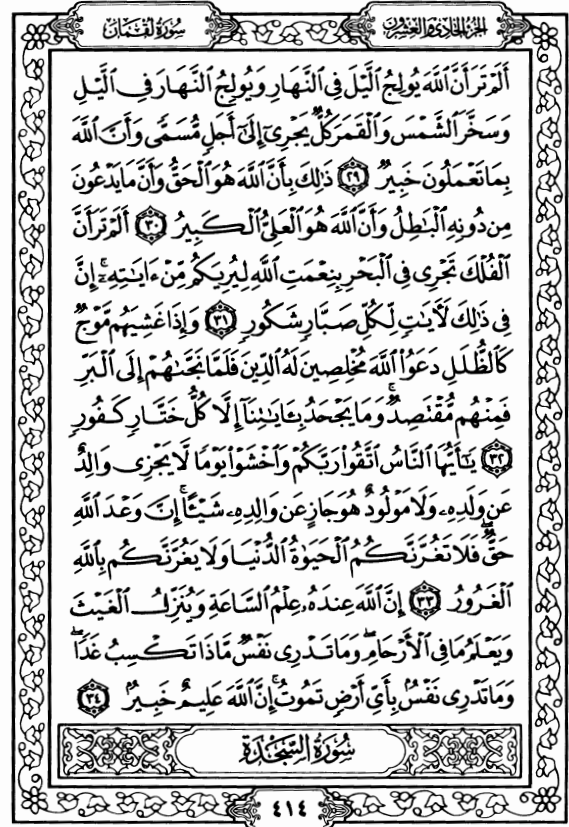 الجزء الحادي والعشرون
سورة لقمان
أَلَمْ تَرَ أَنَّ اللَّهَ يُولِجُ الَّيْلَ فِى النَّهَارِ وَيُولِجُ النَّهَارَ فِى الَّيْلِ
وَسَخَّرَ الشَّمْسَ وَالْقَمَرَ كُلٌّ يَجْرِىٓ إِلَىٰٓ أَجَلٍ مُّسَمًّى وَأَنَّ اللَّهَ
بِمَا تَعْمَلُونَ خَبِيرٌ ٢٩ ذَٰلِكَ بِأَنَّ اللَّهَ هُوَ الْحَقُّ وَأَنَّ مَا يَدْعُونَ
مِن دُونِهِ الْبَٰطِلُ وَأَنَّ اللَّهَ هُوَ الْعَلِىُّ الْكَبِيرُ ٣٠ أَلَمْ تَرَ أَنَّ
الْفُلْكَ تَجْرِى فِى الْبَحْرِ بِنِعْمَتِ اللَّهِ لِيُرِيَكُم مِّنْ ءَايَٰتِهِۦٓۚ إِنَّ
فِى ذَٰلِكَ لَءَايَٰتٍ لِّكُلِّ صَبَّارٍ شَكُورٍ ٣١ وَإِذَا غَشِيَهُم مَّوْجٌ
كَالظُّلَلِ دَعَوُا اللَّهَ مُخْلِصِينَ لَهُ الدِّينَ فَلَمَّا نَجَّىٰهُمْ إِلَى الْبَرِّ
فَمِنْهُم مُّقْتَصِدٌۚ وَمَا يَجْحَدُ بِـَٔايَٰتِنَآ إِلَّا كُلُّ خَتَّارٍ كَفُورٍ
٣٢ يَٰٓأَيُّهَا النَّاسُ اتَّقُوا۟ رَبَّكُمْ وَاخْشَوْا۟ يَوْمًا لَّا يَجْزِى وَالِدٌ
عَن وَلَدِهِۦ وَلَا مَوْلُودٌ هُوَ جَازٍ عَن وَالِدِهِۦ شَيْـًٔاۚ إِنَّ وَعْدَ اللَّهِ
حَقٌّۖ فَلَا تَغُرَّنَّكُمُ الْحَيَوٰةُ الدُّنْيَا وَلَا يَغُرَّنَّكُم بِاللَّهِ
الْغَرُورُ ٣٣ إِنَّ اللَّهَ عِندَهُۥ عِلْمُ السَّاعَةِ وَيُنَزِّلُ الْغَيْثَ
وَيَعْلَمُ مَا فِى الْأَرْحَامِۖ وَمَا تَدْرِى نَفْسٌ مَّاذَا تَكْسِبُ غَدًاۖ
وَمَا تَدْرِى نَفْسٌۢ بِأَىِّ أَرْضٍ تَمُوتُۚ إِنَّ اللَّهَ عَلِيمٌ خَبِيرٌۢ ٣٤
سُورَةُ السَّجْدَةِ
٤١٤